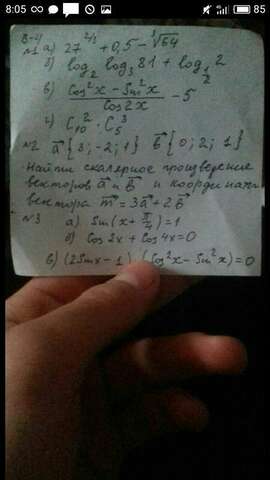 8:05
85
В-4
№1 а) 27^(2/3) + 0,5 - ∛64
б) log₂ log₃ 81 + log_(1/2) 2
в) (cos²x - sin²x)/cos2x - 5
г) C₁₀² · C₅³
№2 a⃗ {3; -2; 1} b⃗ {0; 2; 1}
Найти скалярное произведение
векторов a⃗ и b⃗ и координаты
вектора m⃗ = 3a⃗ + 2b⃗
№3 а) sin(x + π/4) = 1
б) cos 2x + cos 4x = 0
в) (2sinx - 1) (cos²x - sin²x) = 0